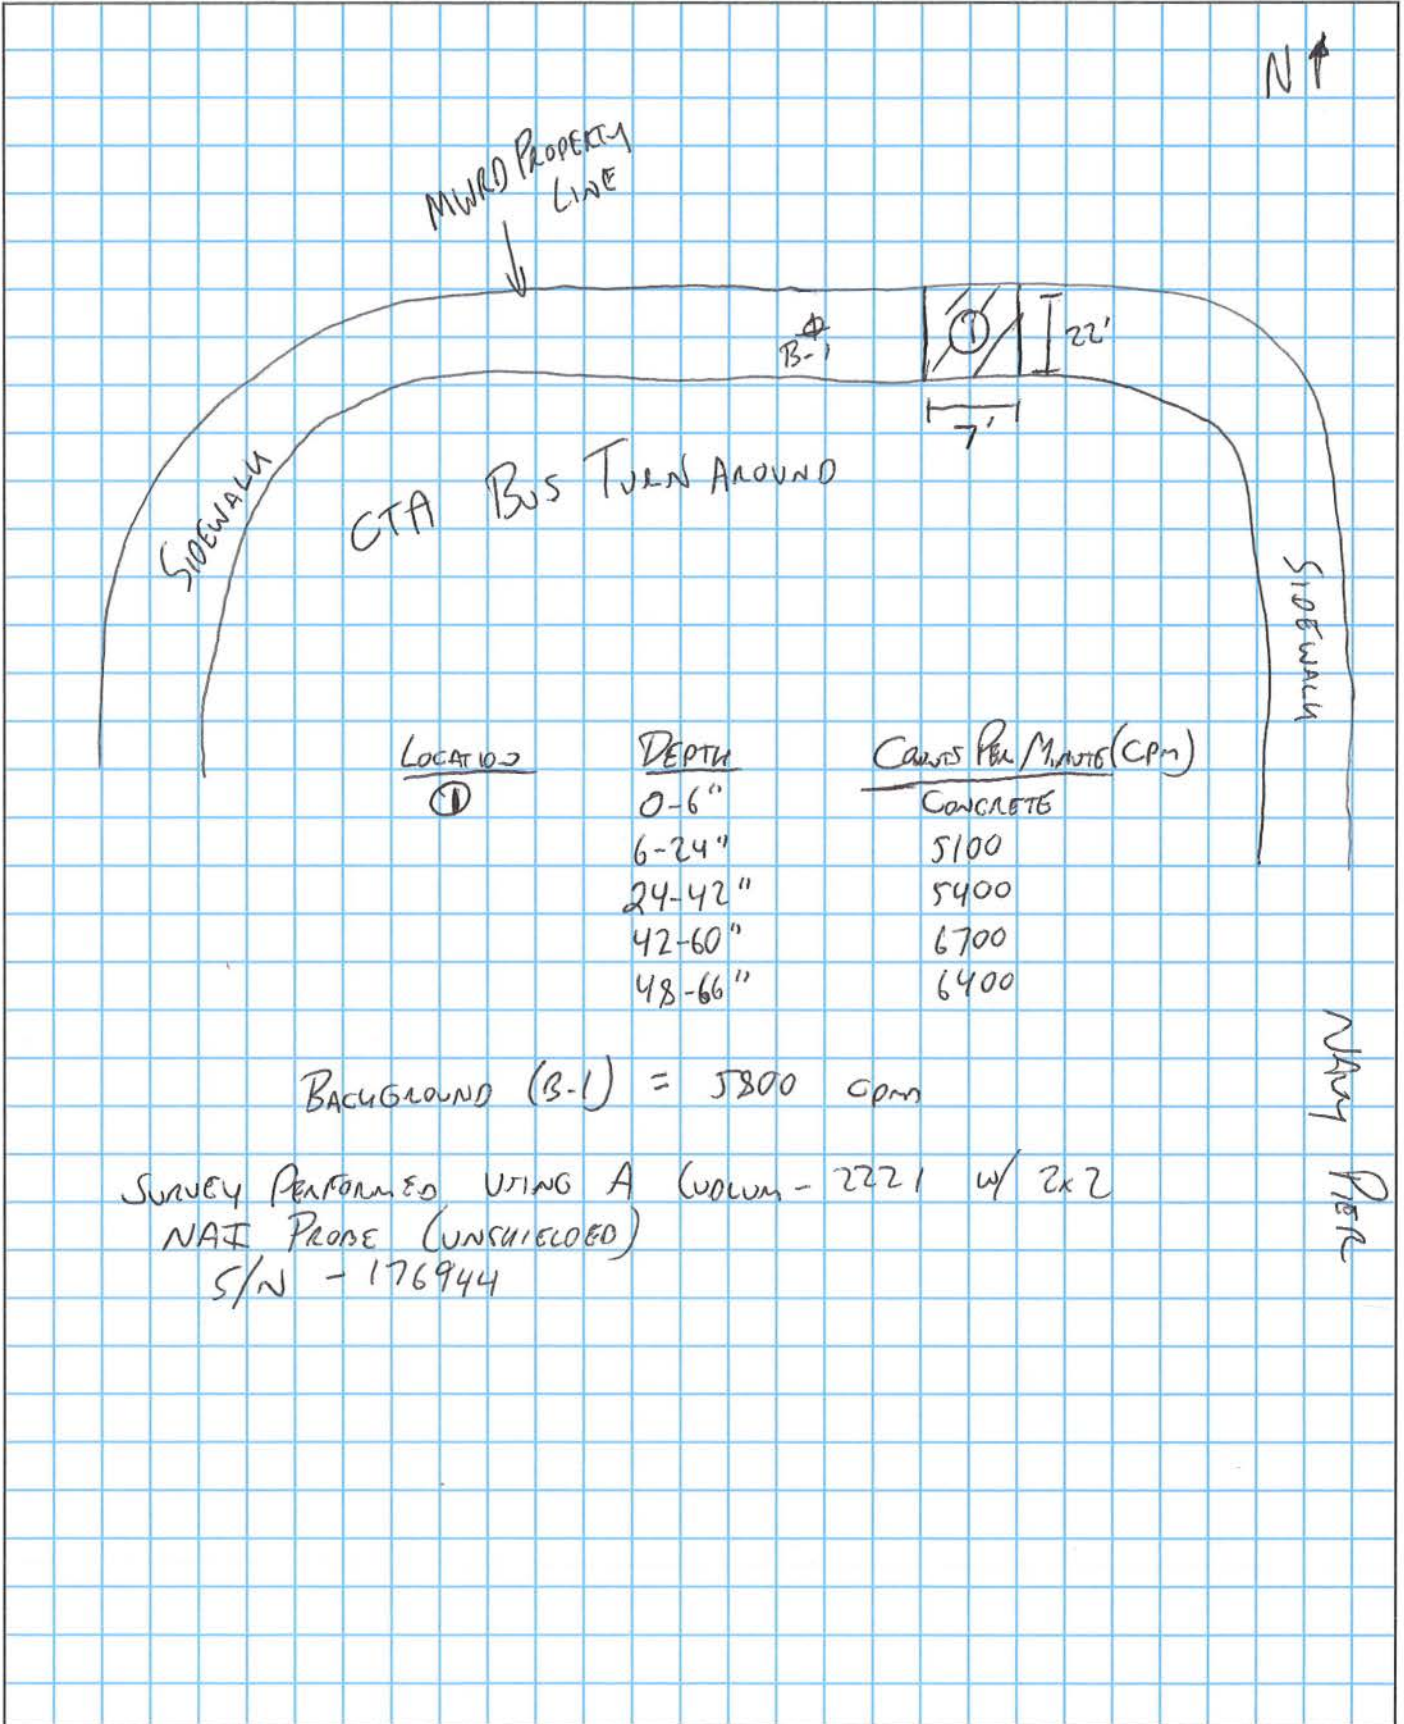 N
MWRD PROPERTY
LINE
B-1
1
22'
7'
CTA BUS TURN AROUND
SIDEWALK
SIDEWALK
LOCATION DEPTH COUNTS PER MINUTE (CPM)
1 0-6" CONCRETE
6-24" 5100
24-42" 5400
42-60" 6700
48-66" 6400
NAVY PIER
BACKGROUND (B-1) = 5800 cpm
SURVEY PERFORMED USING A LUDLUM-2221 W/ 2x2
NAI PROBE (UNSHIELDED)
S/N - 176944